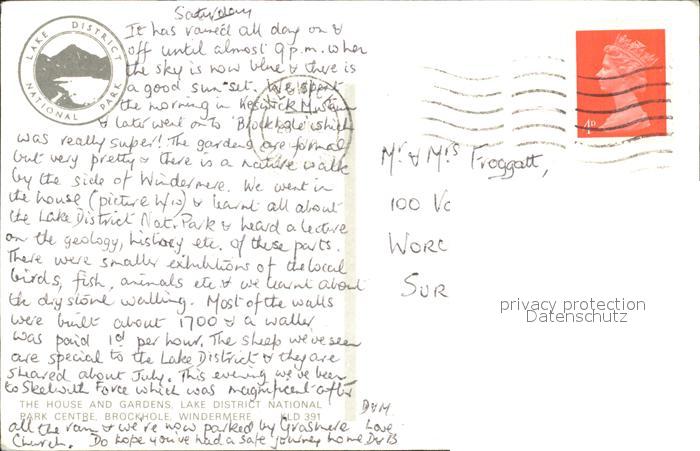 Saturday
LAKE DISTRICT
NATIONAL PARK
It has rained all day on &
off until almost 9 p.m. when
the sky is now blue & there is
a good sun-set. We spent
the morning in Keswick Museum
& later went on to 'Brockhole' which
was really super! The gardens are formal
but very pretty & there is a nature walk
by the side of Windermere. We went in
the house (picture o/s) & learnt all about
the Lake District Nat. Park & heard a lecture
on the geology, history etc. of these parts.
There were smaller exhibitions of the local
birds, fish, animals etc & we learnt about
the dry stone walling. Most of the walls
were built about 1700 & a waller
was paid 1d per hour. The sheep we've seen
are special to the Lake District & they are
sheared about July. This evening we've been
to Skelwith Force which was magnificent after
THE HOUSE AND GARDENS, LAKE DISTRICT NATIONAL
PARK CENTRE, BROCKHOLE, WINDERMERE KLD 391
all the rain & we're now parked by Grasmere
Church. Do hope you've had a safe journey home
D & M.
Love
4D
Mr & Mrs Froggatt,
100
WORC
SUR
privacy protection
Datenschutz